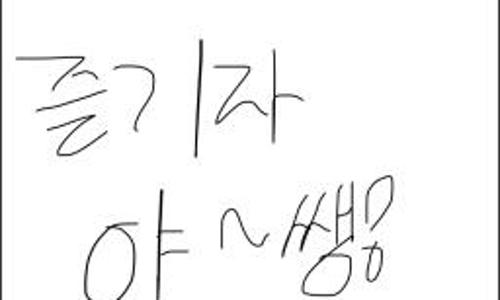 즐기자
야~쌩!